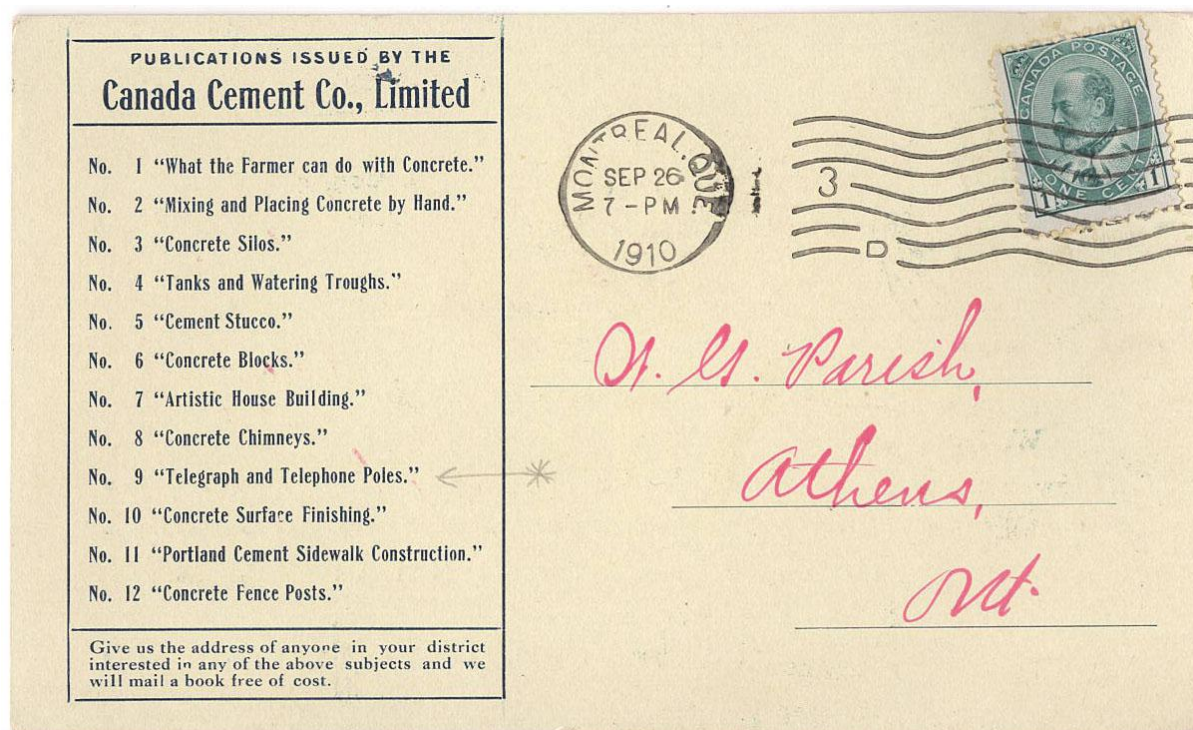 PUBLICATIONS ISSUED BY THE
Canada Cement Co., Limited
No. 1 “What the Farmer can do with Concrete.”
No. 2 “Mixing and Placing Concrete by Hand.”
No. 3 “Concrete Silos.”
No. 4 “Tanks and Watering Troughs.”
No. 5 “Cement Stucco.”
No. 6 “Concrete Blocks.”
No. 7 “Artistic House Building.”
No. 8 “Concrete Chimneys.”
No. 9 “Telegraph and Telephone Poles.”
No. 10 “Concrete Surface Finishing.”
No. 11 “Portland Cement Sidewalk Construction.”
No. 12 “Concrete Fence Posts.”
Give us the address of anyone in your district
interested in any of the above subjects and we
will mail a book free of cost.
MONTREAL. QUE.
SEP 26
7 - PM
1910
3
D
CANADA POSTAGE
1 ONE CENT 1
G. Parish,
Athens,
Ont.